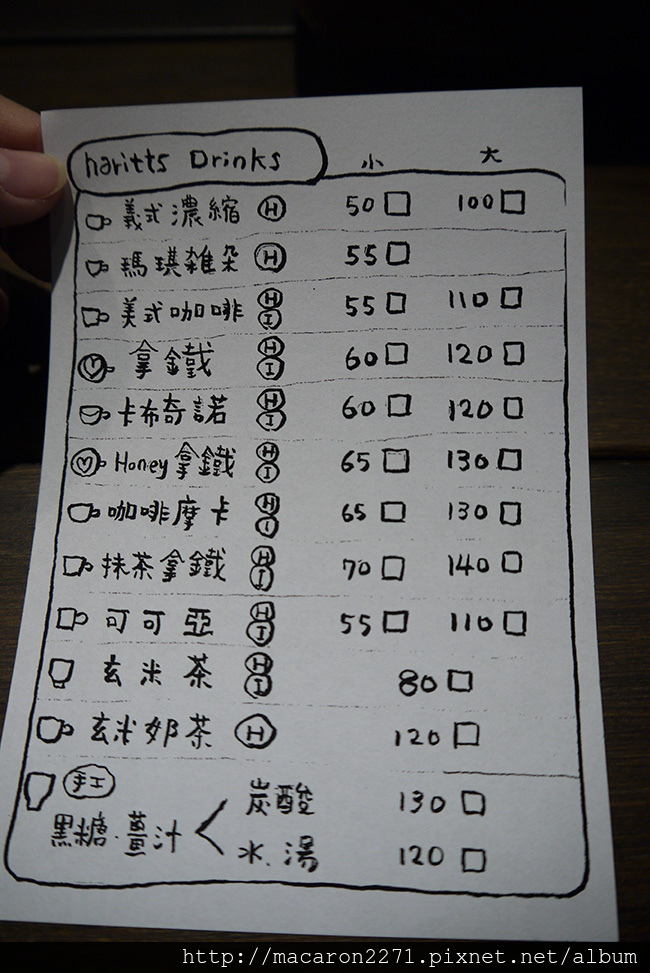 haritts Drinks 小 大
義式濃縮 H 50 □ 100 □
瑪琪雑朶 H 55 □
美式咖啡 H I 55 □ 110 □
拿鐵 H I 60 □ 120 □
卡布奇諾 H I 60 □ 120 □
Honey拿鐵 H I 65 □ 130 □
咖啡摩卡 H I 65 □ 130 □
抹茶拿鐵 H I 70 □ 140 □
可可亞 H I 55 □ 110 □
玄米茶 H I 80 □
玄米奶茶 H 120 □
手工
黑糖·薑汁 < 炭酸 130 □
水、湯 120 □
http://macaron2271.pixnet.net/album